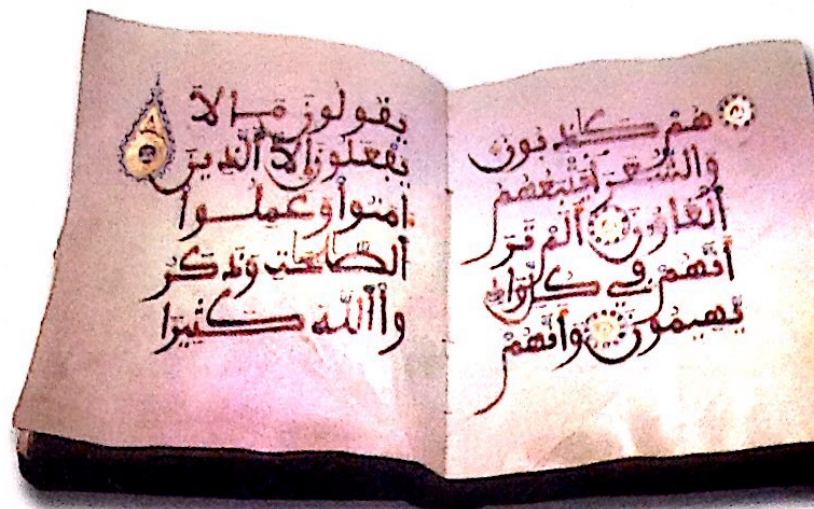 هُمْ كَٰذِبُونَ
وَالشُّعَرَا يَتَّبِعُهُمُ
اَلْغَاوُۥنَ اَلَمْ تَرَ
أَنَّهُمْ فِي كُلِّ وَادٍ
يَهِيمُونَ وَأَنَّهُمْ
يَقُولُونَ مَا لَا
يَفْعَلُونَ إِلَّا اَلَّذِينَ
ءَامَنُواْ وَعَمِلُواْ
اَلصَّٰلِحَٰتِ وَذَكَرُ
واْ اَللَّهَ كَثِيرًا